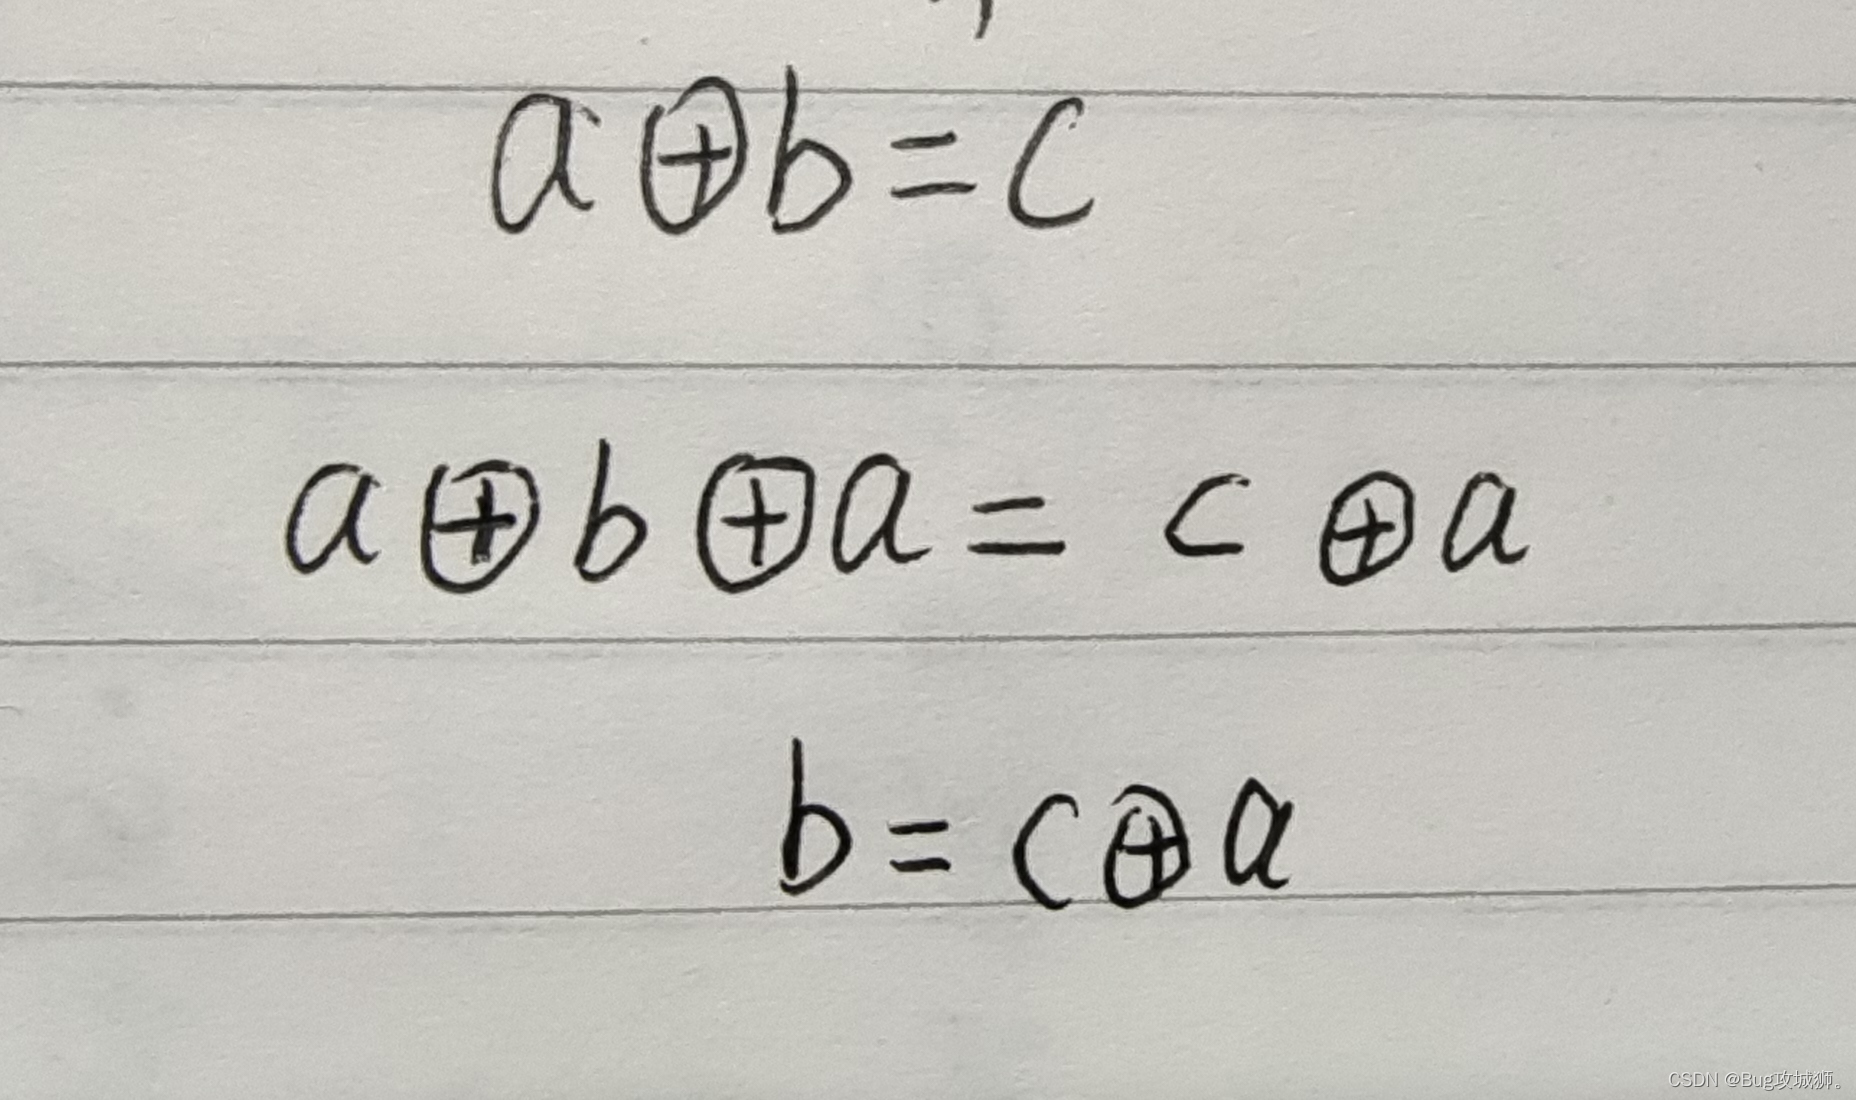 a⊕b=c
a⊕b⊕a=c⊕a
b=c⊕a
CSDN @Bug攻城狮。